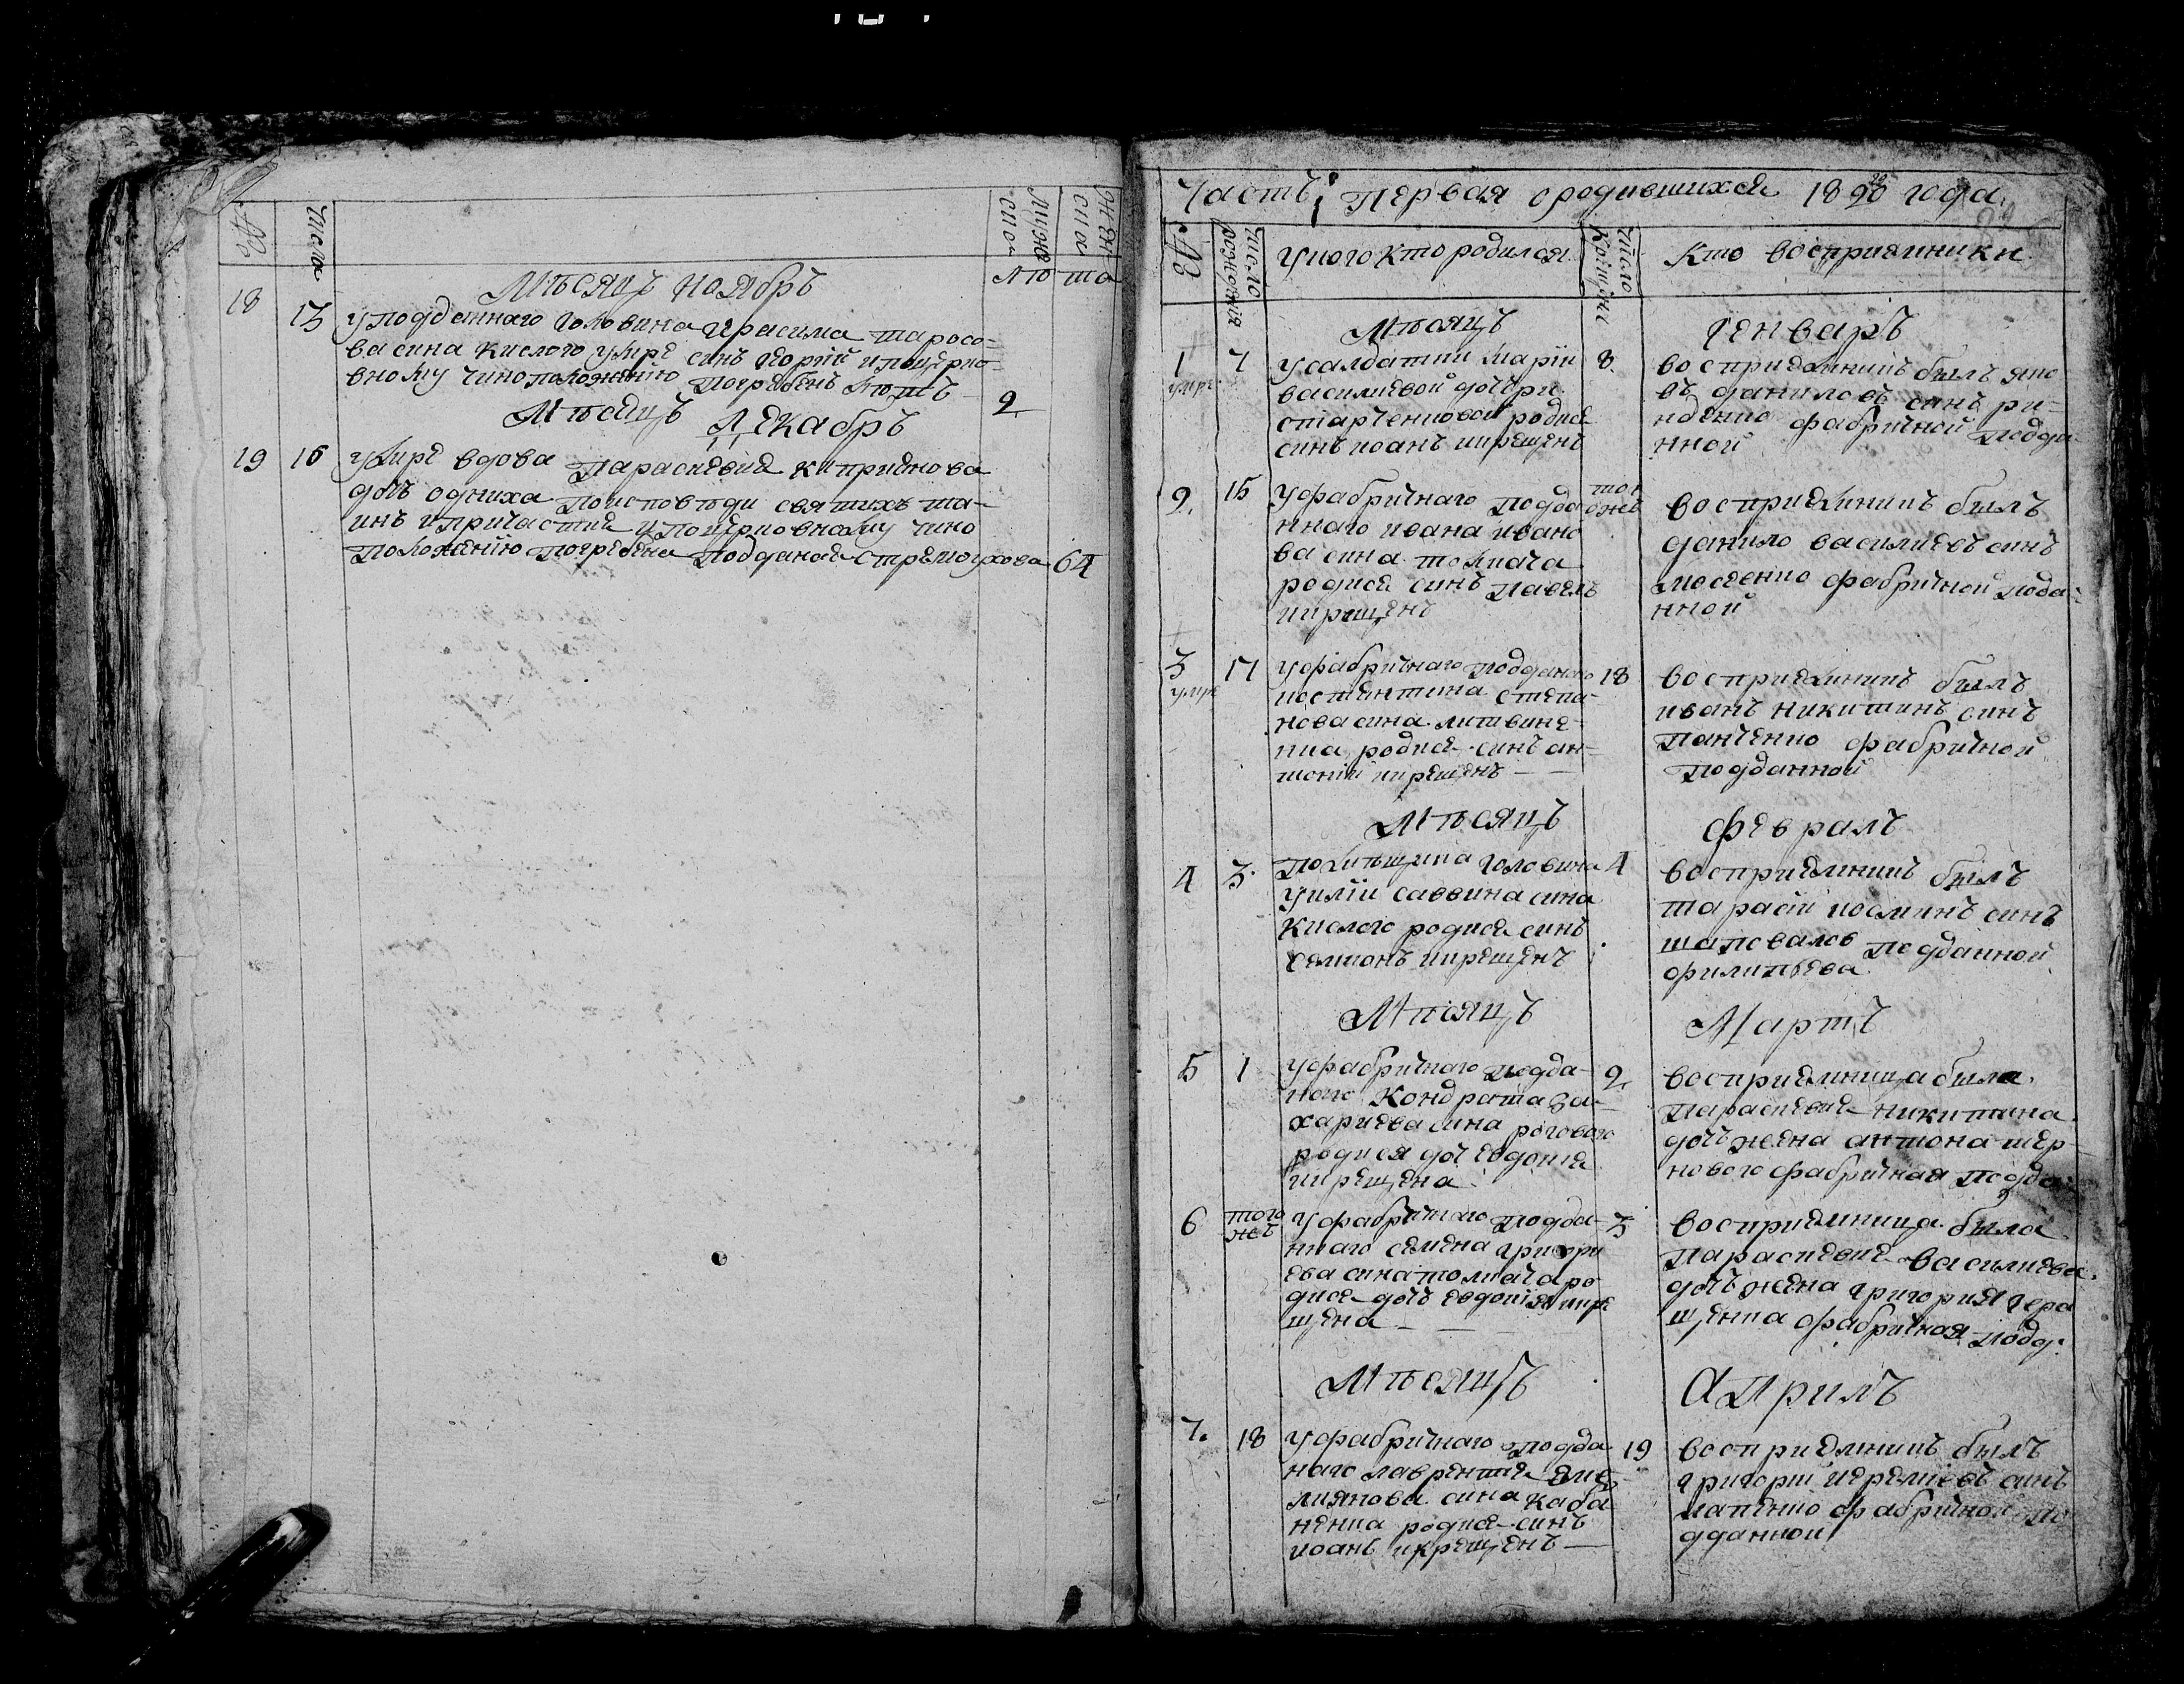 №
Число
Мужеска
Женска
лѣта
Мѣсяцъ ноябръ
18
13
У подданнаго Головина Герасима тарасо-
ва сина кислого умре синъ георгий и поцерко-
вному чиноположению погребенъ лѣтъ
2
Мѣсяцъ Декабръ
19 16
умре вдова Параскевия киприянова
дочь поисповѣди святихъ та-
инъ и причастия ипоцерковному чино
положению погребена подданая
64
Часть Первая о родившихся 1820 года
№
Число рождения
У кого кто родился
Число крещения
Кто восприемники
Мѣсяцъ Генваръ
1 7 8
умре
У салдатки марии
василиевой дочери
родися
синъ иоанъ и крещенъ
восприемникъ былъ яко
въ даниловъ синъ ри-
фабричной подда
нной
2 15
того ожъ
У фабричного подда
ннаго ивана ивано
ва сина толмача
родися синъ павелъ
и крещенъ
восприемникъ былъ
данило василиевъ синъ
мосеенко фабричной подда-
нной
3 17 18
умре
У фабричнаго подданого
костянтина степа-
нова сина литвине-
нка родися синъ ан-
тоний и крещенъ
восприемникъ былъ
иванъ никитинъ синъ
Панченко фабричной
подданной
Мѣсяцъ Февралъ
4 3 4
Помѣщика головина
У илии саввина сина
кислого родися синъ
симионъ и крещенъ
восприемникъ былъ
тарасий косминъ синъ
шаповалов подданной
филипьева
Мѣсяцъ Мартъ
5 1 2
У фабричнаго подда-
ного Кондрата за-
хариева сина рогового
родися дочь евдокия
и крещена
восприемница была
параскевия никитина
дочь жена антона тер
нового фабричная подда
6
того жъ
3
У фабричнаго подда-
ннаго семена григори
ева сина толмача ро
дися дочь евдокия и кре
щена
восприемница была
параскевия василиева
дочь жена григория гера
щенка фабричная подд:
Мѣсяцъ Априлъ
7. 18 19
У фабричнаго подда
наго лаврентия еме
лиянова сина каба
ненка родися синъ
иоанъ и крещенъ
восприемникъ былъ
григорий иеремиевъ синъ
лапенко фабричной по
дданной